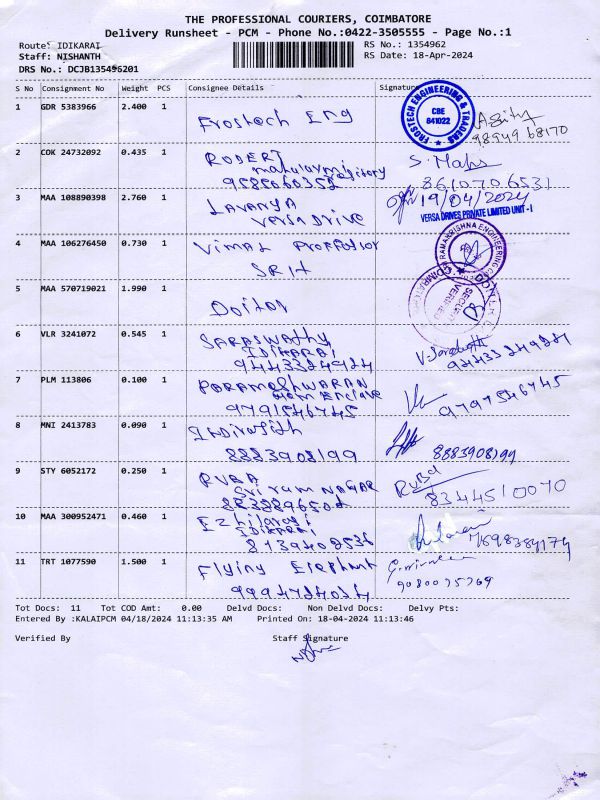 THE PROFESSIONAL COURIERS, COIMBATORE
Delivery Runsheet - PCM - Phone No.:0422-3505555 - Page No.:1
Route: IDIKARAI
RS No.: 1354962
Staff: NISHANTH
RS Date: 18-Apr-2024
DRS No.: DCJB135496201
S No Consignment No Weight PCS Consignee Details Signature
1 GDR 5383966 2.400 1 Frostech Eng
FROSTECH ENGINEERING & TRADERS
CBE
641022
98949 68170
2 COK 24732092 0.435 1 ROBERT
9585060352
3610706531
3 MAA 108890398 2.760 1 LAVANYA
VERSA DRIVE
19/04/2024
VERSA DRIVES PRIVATE LIMITED UNIT - I
4 MAA 106276450 0.730 1 VIMAL
SRIH
RAMAKRISHNA ENGINEERING
5 MAA 570719021 1.990 1
SECURITY
VERIFIED
6 VLR 3241072 0.545 1 SARASWATHY
IDIKARAI
9443324924
7 PLM 113806 0.100 1 PARAMESHWARAN
Enclave
9791546745
9791546745
8 MNI 2413783 0.090 1
8883908199
8883908199
9 STY 6052172 0.250 1 RUBA
Sri ram NAGAR
8344510070
10 MAA 300952471 0.460 1 Ezhilarasi
IDIKARAI
8139408536
11 TRT 1077590 1.500 1 Flying Elephant
Tot Docs: 11 Tot COD Amt: 0.00 Delvd Docs: Non Delvd Docs: Delvy Pts:
Entered By :KALAIPCM 04/18/2024 11:13:35 AM Printed On: 18-04-2024 11:13:46
Verified By Staff Signature